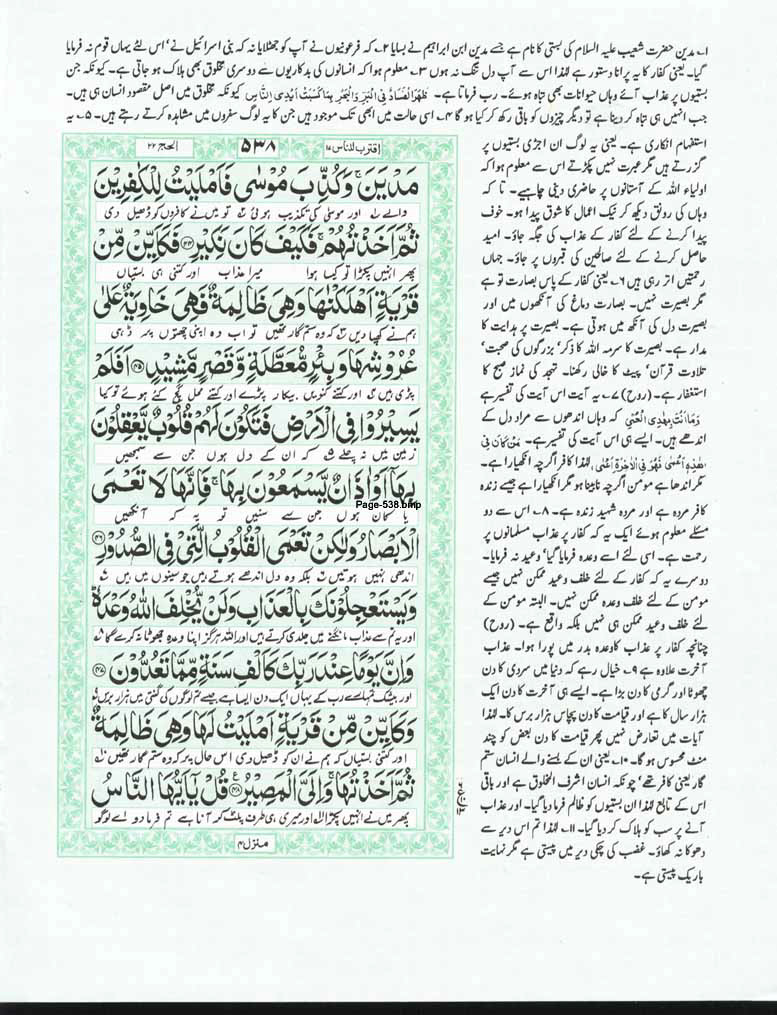 ۱۔ مدین حضرت شعیب علیہ السلام کی بستی کا نام ہے جسے مدین ابن ابراہیم نے بسایا ۲۔ کہ فرعونیوں نے آپ کو جھٹلایا نہ کہ بنی اسرائیل نے' اس لئے یہاں قوم نہ فرمایا
گیا۔ یعنی کفار کا یہ پرانا دستور ہے لہٰذا اس سے آپ دل تنگ نہ ہوں ۳۔ معلوم ہوا کہ انسانوں کی بدکاریوں سے دوسری مخلوق بھی ہلاک ہو جاتی ہے۔ کیونکہ جن
بستیوں پر عذاب آئے وہاں حیوانات بھی تباہ ہوئے۔ رب فرماتا ہے۔ ظَهَرَ الْفَسَادُ فِی الْبَرِّ وَالْبَحْرِ بِمَا كَسَبَتْ اَیْدِی النَّاسِ کیونکہ مخلوق میں اصل مقصود انسان ہی ہیں۔
جب انہیں ہی تباہ کر دینا ہے تو دیگر چیزوں کو باقی رکھ کر کیا ہو گا ۴۔ اسی حالت میں ابھی تک موجود ہیں جن کا یہ لوگ سفروں میں مشاہدہ کرتے رہتے ہیں۔ ۵۔ یہ
استفہام انکاری ہے۔ یعنی یہ لوگ ان اجڑی بستیوں پر
گزرتے ہیں مگر عبرت نہیں پکڑتے اس سے معلوم ہوا کہ
اولیاء اللہ کے آستانوں پر حاضری دینی چاہیے۔ تا کہ
وہاں کی رونق دیکھ کر نیک اعمال کا شوق پیدا ہو۔ خوف
پیدا کرنے کے لئے کفار کے عذاب کی جگہ جاؤ۔ امید
حاصل کرنے کے لئے صالحین کی قبروں پر جاؤ۔ جہاں
رحمتیں اتر رہی ہیں ۶۔ یعنی کفار کے پاس بصارت تو ہے
مگر بصیرت نہیں۔ بصارت دماغ کی آنکھوں میں اور
بصیرت دل کی آنکھ میں ہوتی ہے۔ بصیرت پر ہدایت کا
مدار ہے۔ بصیرت کا سرمہ اللہ کا ذکر' بزرگوں کی صحبت'
تلاوت قرآن' پیٹ کا خالی رکھنا۔ تہجد کی نماز صبح کا
استغفار ہے۔ (روح) ۷۔ یہ آیت اس آیت کی تفسیر ہے
وَمَا اَنْتَ بِهٰدِی الْعُمْیِ کہ وہاں اندھوں سے مراد دل کے
اندھے ہیں۔ ایسے ہی اس آیت کی تفسیر ہے۔ مَنْ كَانَ فِیْ
هٰذِهٖ اَعْمٰی فَهُوَ فِی الْاٰخِرَةِ اَعْمٰی، لہٰذا کافر اگرچہ انکھیارا ہے۔
مگر اندھا ہے مومن اگرچہ نابینا ہو مگر انکھیارا ہے جیسے زندہ
کافر مردہ ہے اور مردہ شہید زندہ ہے۔ ۸۔ اس سے دو
مسئلے معلوم ہوئے ایک یہ کہ کفار پر عذاب مسلمانوں پر
رحمت ہے۔ اسی لئے اسے وعدہ فرمایا گیا' وعید نہ فرمایا۔
دوسرے یہ کہ کفار کے لئے خلف وعید ممکن نہیں جیسے
مومن کے لئے خلف وعدہ ممکن نہیں۔ البتہ مومن کے
لئے خلف وعید ممکن ہی نہیں بلکہ واقع ہے۔ (روح)
چنانچہ کفار پر عذاب کا وعدہ بدر میں پورا ہوا۔ عذاب
آخرت علاوہ ہے ۹۔ خیال رہے کہ دنیا میں سردی کا دن
چھوٹا اور گرمی کا دن بڑا ہے۔ ایسے ہی آخرت کا دن ایک
ہزار سال کا ہے اور قیامت کا دن پچاس ہزار برس کا۔ لہٰذا
آیات میں تعارض نہیں پھر قیامت کا دن بعض کو چند
منٹ محسوس ہو گا۔ ۱۰۔ یعنی ان کے بسنے والے انسان ستم
گار یعنی کافر تھے' چونکہ انسان اشرف المخلوق ہے اور باقی
اس کے تابع لہٰذا ان بستیوں کو ظالم فرما دیا گیا۔ اور عذاب
آنے پر سب کو ہلاک کر دیا گیا۔ ۱۱۔ لہٰذا تم اس دیر سے
دھوکا نہ کھاؤ۔ غضب کی چکی دیر میں پیستی ہے مگر نہایت
باریک پیستی ہے۔
اقترب للناس ۱۷
۵۳۸
الحج ۲۲
مَدْیَنَ ۚ وَكُذِّبَ مُوْسٰی فَاَمْلَیْتُ لِلْكٰفِرِیْنَ
والے ۱ اور موسیٰ کی تکذیب ہوئی ۲ تو میں نے کافروں کو ڈھیل دی
ثُمَّ اَخَذْتُهُمْ ۚ فَكَیْفَ كَانَ نَكِیْرِ ﴿۴۴﴾ فَكَاَیِّنْ مِّنْ
پھر انہیں پکڑا تو کیسا ہوا میرا عذاب اور کتنی ہی بستیاں
قَرْیَةٍ اَهْلَكْنٰهَا وَهِیَ ظَالِمَةٌ فَهِیَ خَاوِیَةٌ عَلٰی
ہم نے کھپا دیں ۳ کہ وہ ستم گار تھیں تو اب وہ اپنی چھتوں پر ڈہی
عُرُوْشِهَا وَبِئْرٍ مُّعَطَّلَةٍ وَّقَصْرٍ مَّشِیْدٍ ﴿۴۵﴾ اَفَلَمْ
پڑی ہیں ۴ اور کتنے کنوئیں بیکار پڑے اور کتنے محل گچ کئے ہوئے تو کیا
یَسِیْرُوْا فِی الْاَرْضِ فَتَكُوْنَ لَهُمْ قُلُوْبٌ یَّعْقِلُوْنَ
زمین میں نہ چلے ۵ کہ ان کے دل ہوں جن سے سمجھیں
بِهَاۤ اَوْ اٰذَانٌ یَّسْمَعُوْنَ بِهَا ۚ فَاِنَّهَا لَا تَعْمَی
یا کان ہوں جن سے سنیں تو یہ کہ آنکھیں
Page-538.bmp
الْاَبْصَارُ وَلٰكِنْ تَعْمَی الْقُلُوْبُ الَّتِیْ فِی الصُّدُوْرِ ﴿۴۶﴾
اندھی نہیں ہوتیں ۶ بلکہ وہ دل اندھے ہوتے ہیں جو سینوں میں ہیں ۷
وَیَسْتَعْجِلُوْنَكَ بِالْعَذَابِ وَلَنْ یُّخْلِفَ اللّٰهُ وَعْدَهٗ ؕ
اور یہ تم سے عذاب مانگنے میں جلدی کرتے ہیں اور اللہ ہرگز اپنا وعدہ جھوٹا نہ کرے گا ۸
وَاِنَّ یَوْمًا عِنْدَ رَبِّكَ كَاَلْفِ سَنَةٍ مِّمَّا تَعُدُّوْنَ ﴿۴۷﴾
اور بیشک تمہارے رب کے یہاں ایک دن ایسا ہے جیسے تم لوگوں کی گنتی میں ہزار برس ۹
وَكَاَیِّنْ مِّنْ قَرْیَةٍ اَمْلَیْتُ لَهَا وَهِیَ ظَالِمَةٌ
اور کتنی بستیاں کہ ہم نے ان کو ڈھیل دی اس حال پر کہ وہ ستم گار تھیں ۱۰
ثُمَّ اَخَذْتُهَا ۚ وَاِلَیَّ الْمَصِیْرُ ﴿۴۸﴾ قُلْ یٰۤاَیُّهَا النَّاسُ
پھر میں نے انہیں پکڑا ۱۱ اور میری ہی طرف پلٹ کر آنا ہے تم فرما دو اے لوگو
منزل ۴